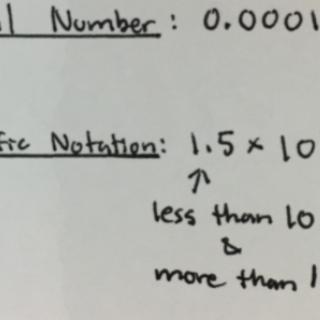 l Number: 0.0001
fic Notation: 1.5 × 10
less than 10
&
more than 1